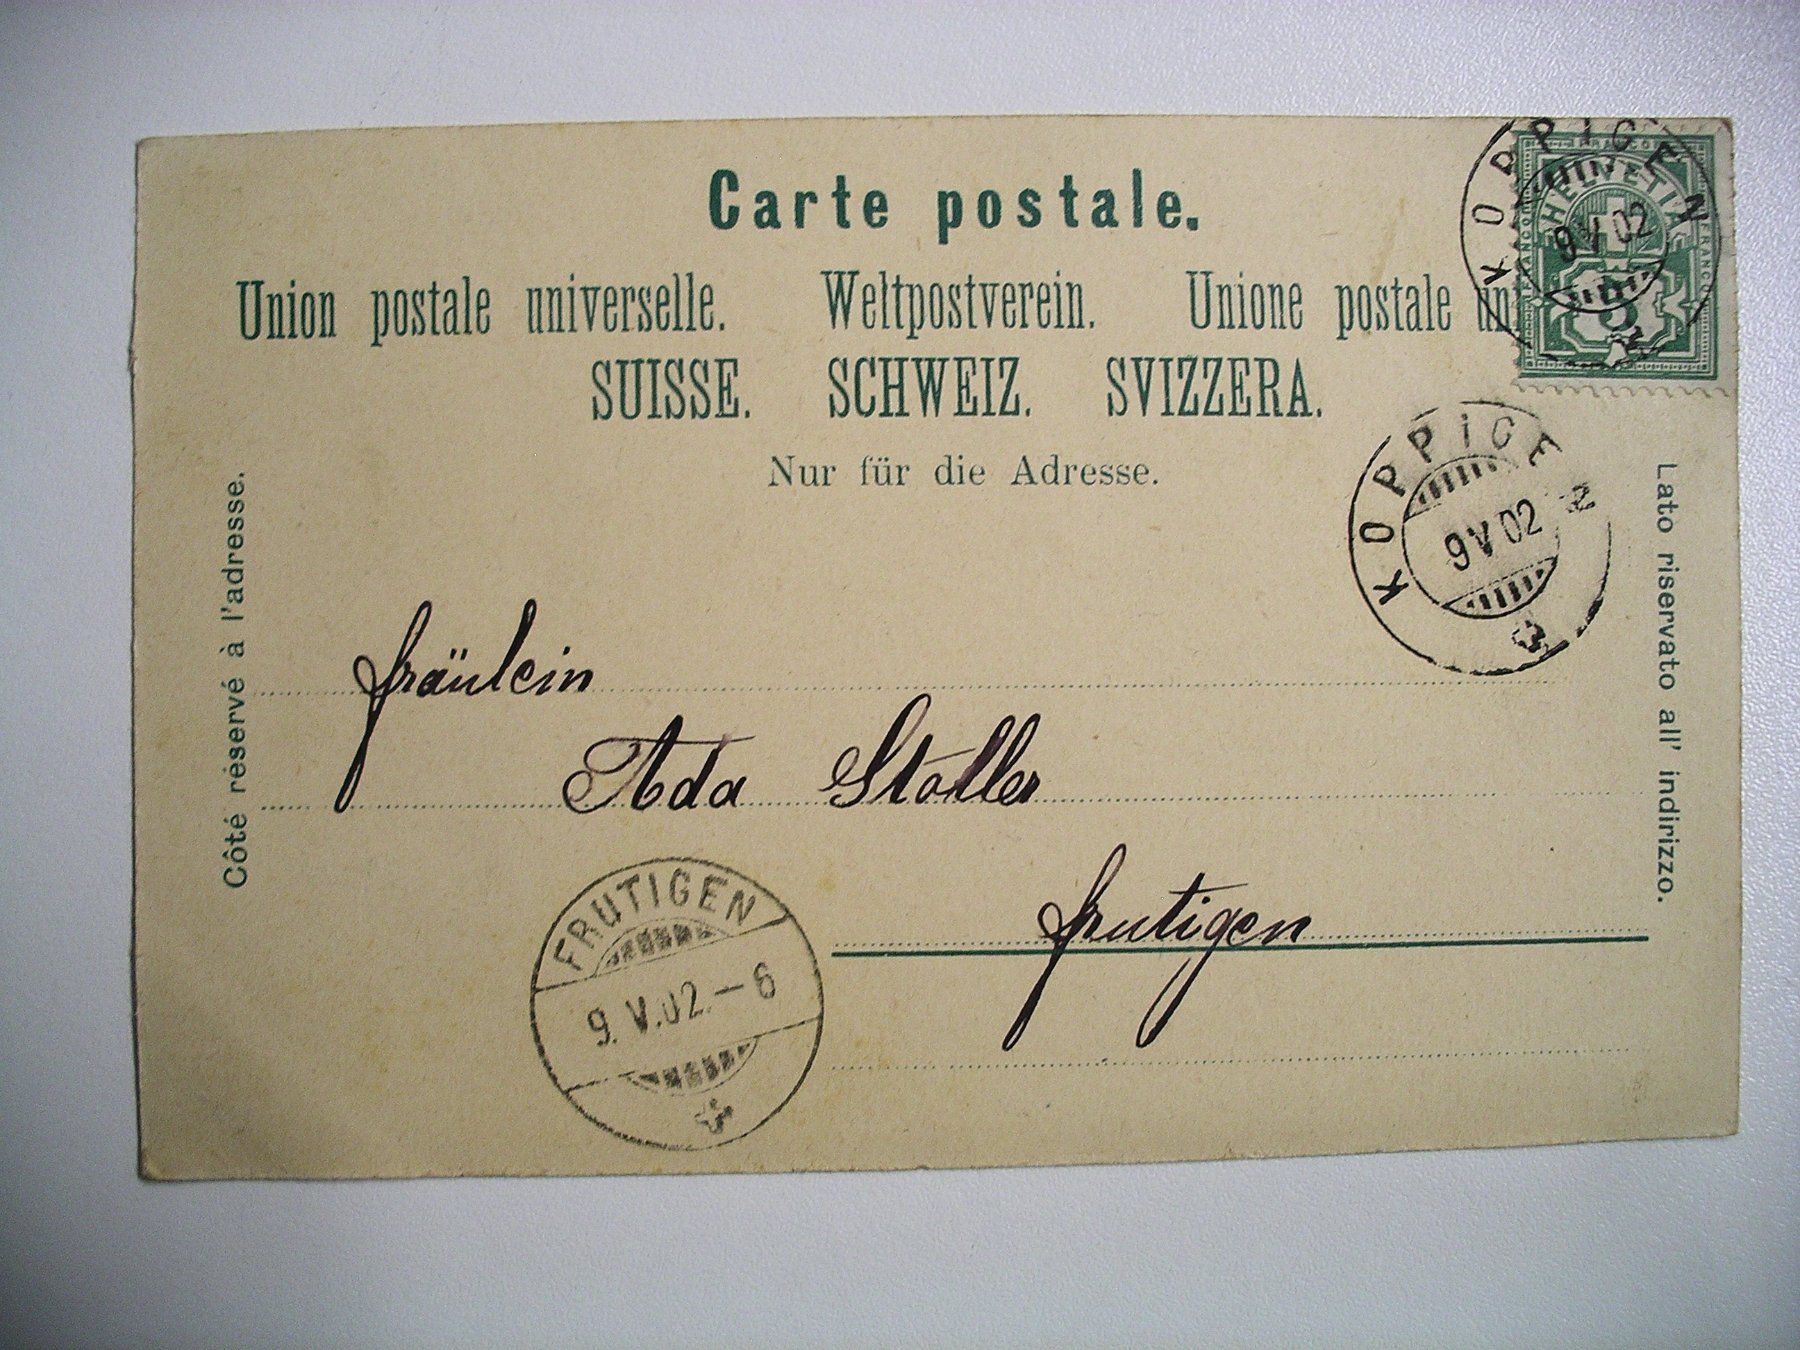 Carte postale.
Union postale universelle. Weltpostverein. Unione postale un
SUISSE. SCHWEIZ. SVIZZERA.
Nur für die Adresse.
Côté réservé à l'adresse.
Lato riservato all' indirizzo.
KOPPIGEN
9 V 02
HELVETIA
FRANCO
5
KOPPIGEN
9 V 02
fräulein
Ada Stoller
frutigen
FRUTIGEN
9. V. 02. – 6